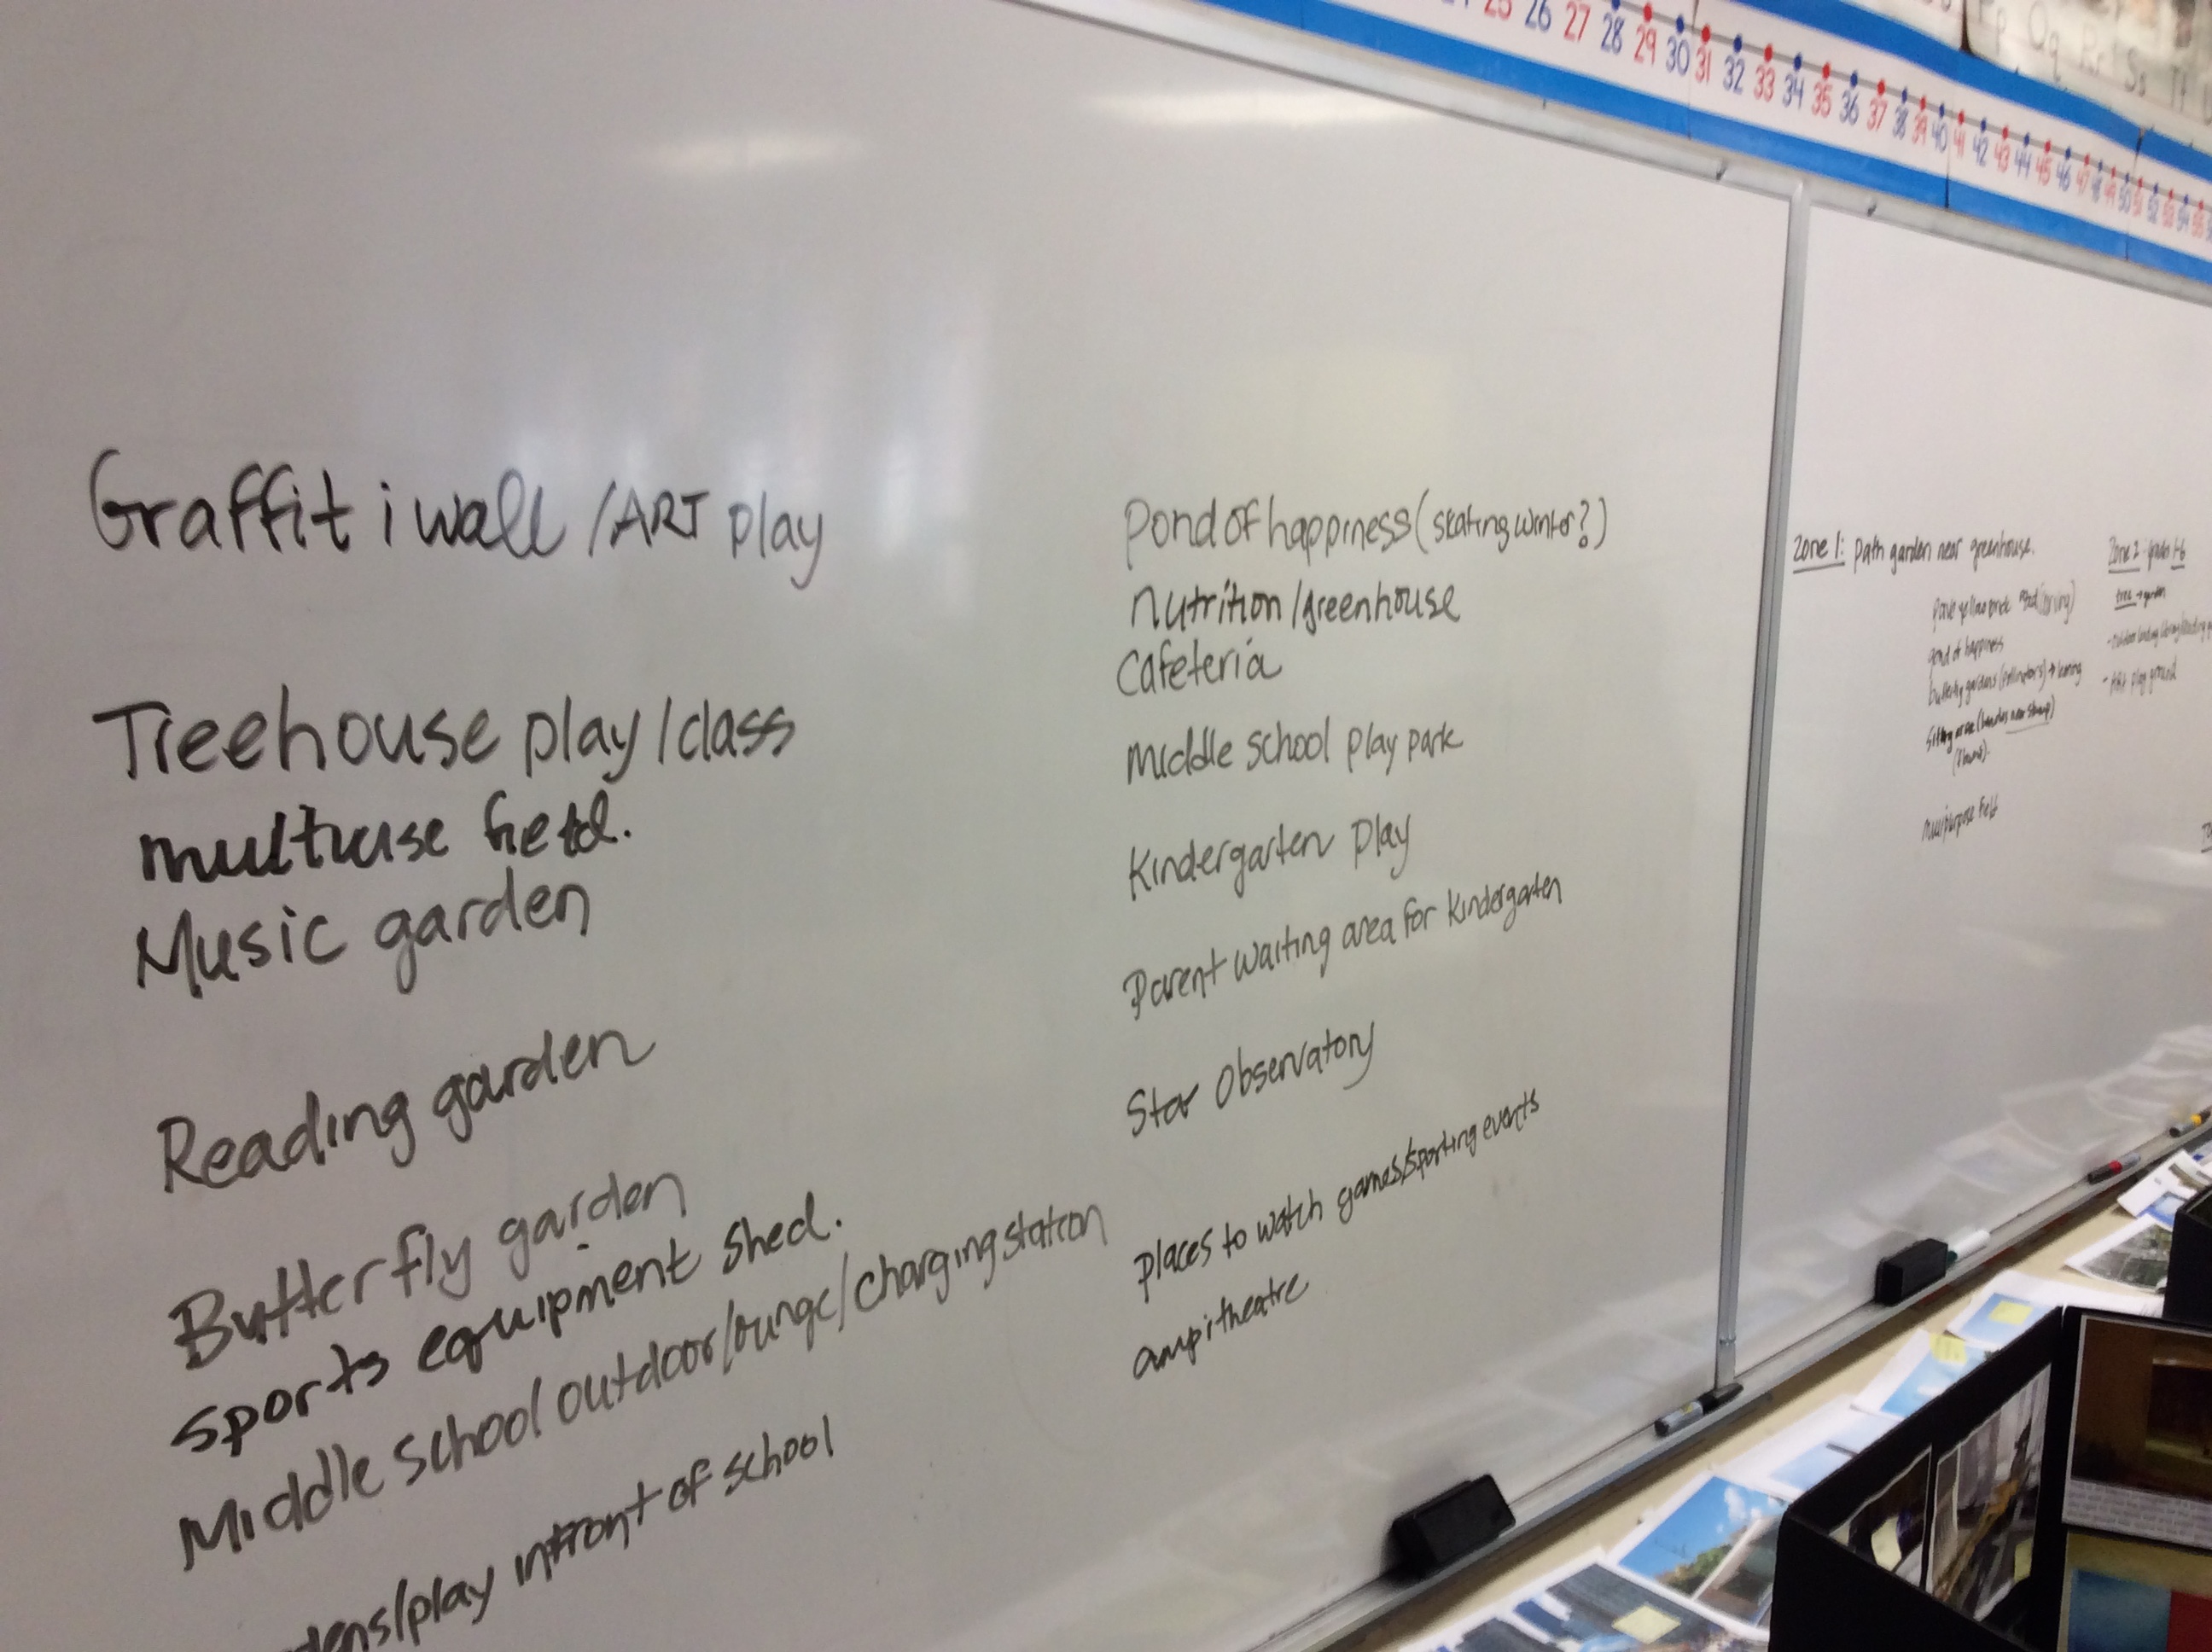 25 26 27 28 29 30 31 32 33 34 35 36 37 38 39 40 41 42 43 44 45 46 47 48 49 50 51 52 53 54 55
Qq Rr Ss
Graffiti wall / ART play
Treehouse play / class
multiuse field.
Music garden
Reading garden
Butterfly garden
sports equipment shed.
Middle school outdoor/lounge/charging station
dens/play infront of school
Pond of happiness (skating winter?)
nutrition / greenhouse
Cafeteria
Middle school play park
Kindergarten play
Parent waiting area for kindergarten
Star Observatory
places to watch games/sporting events
ampitheatre
Zone 1: path garden near greenhouse.
pond of happiness
butterfly gardens
Sitting area
multipurpose field
Zone 2 grades
tree → garden
play ground